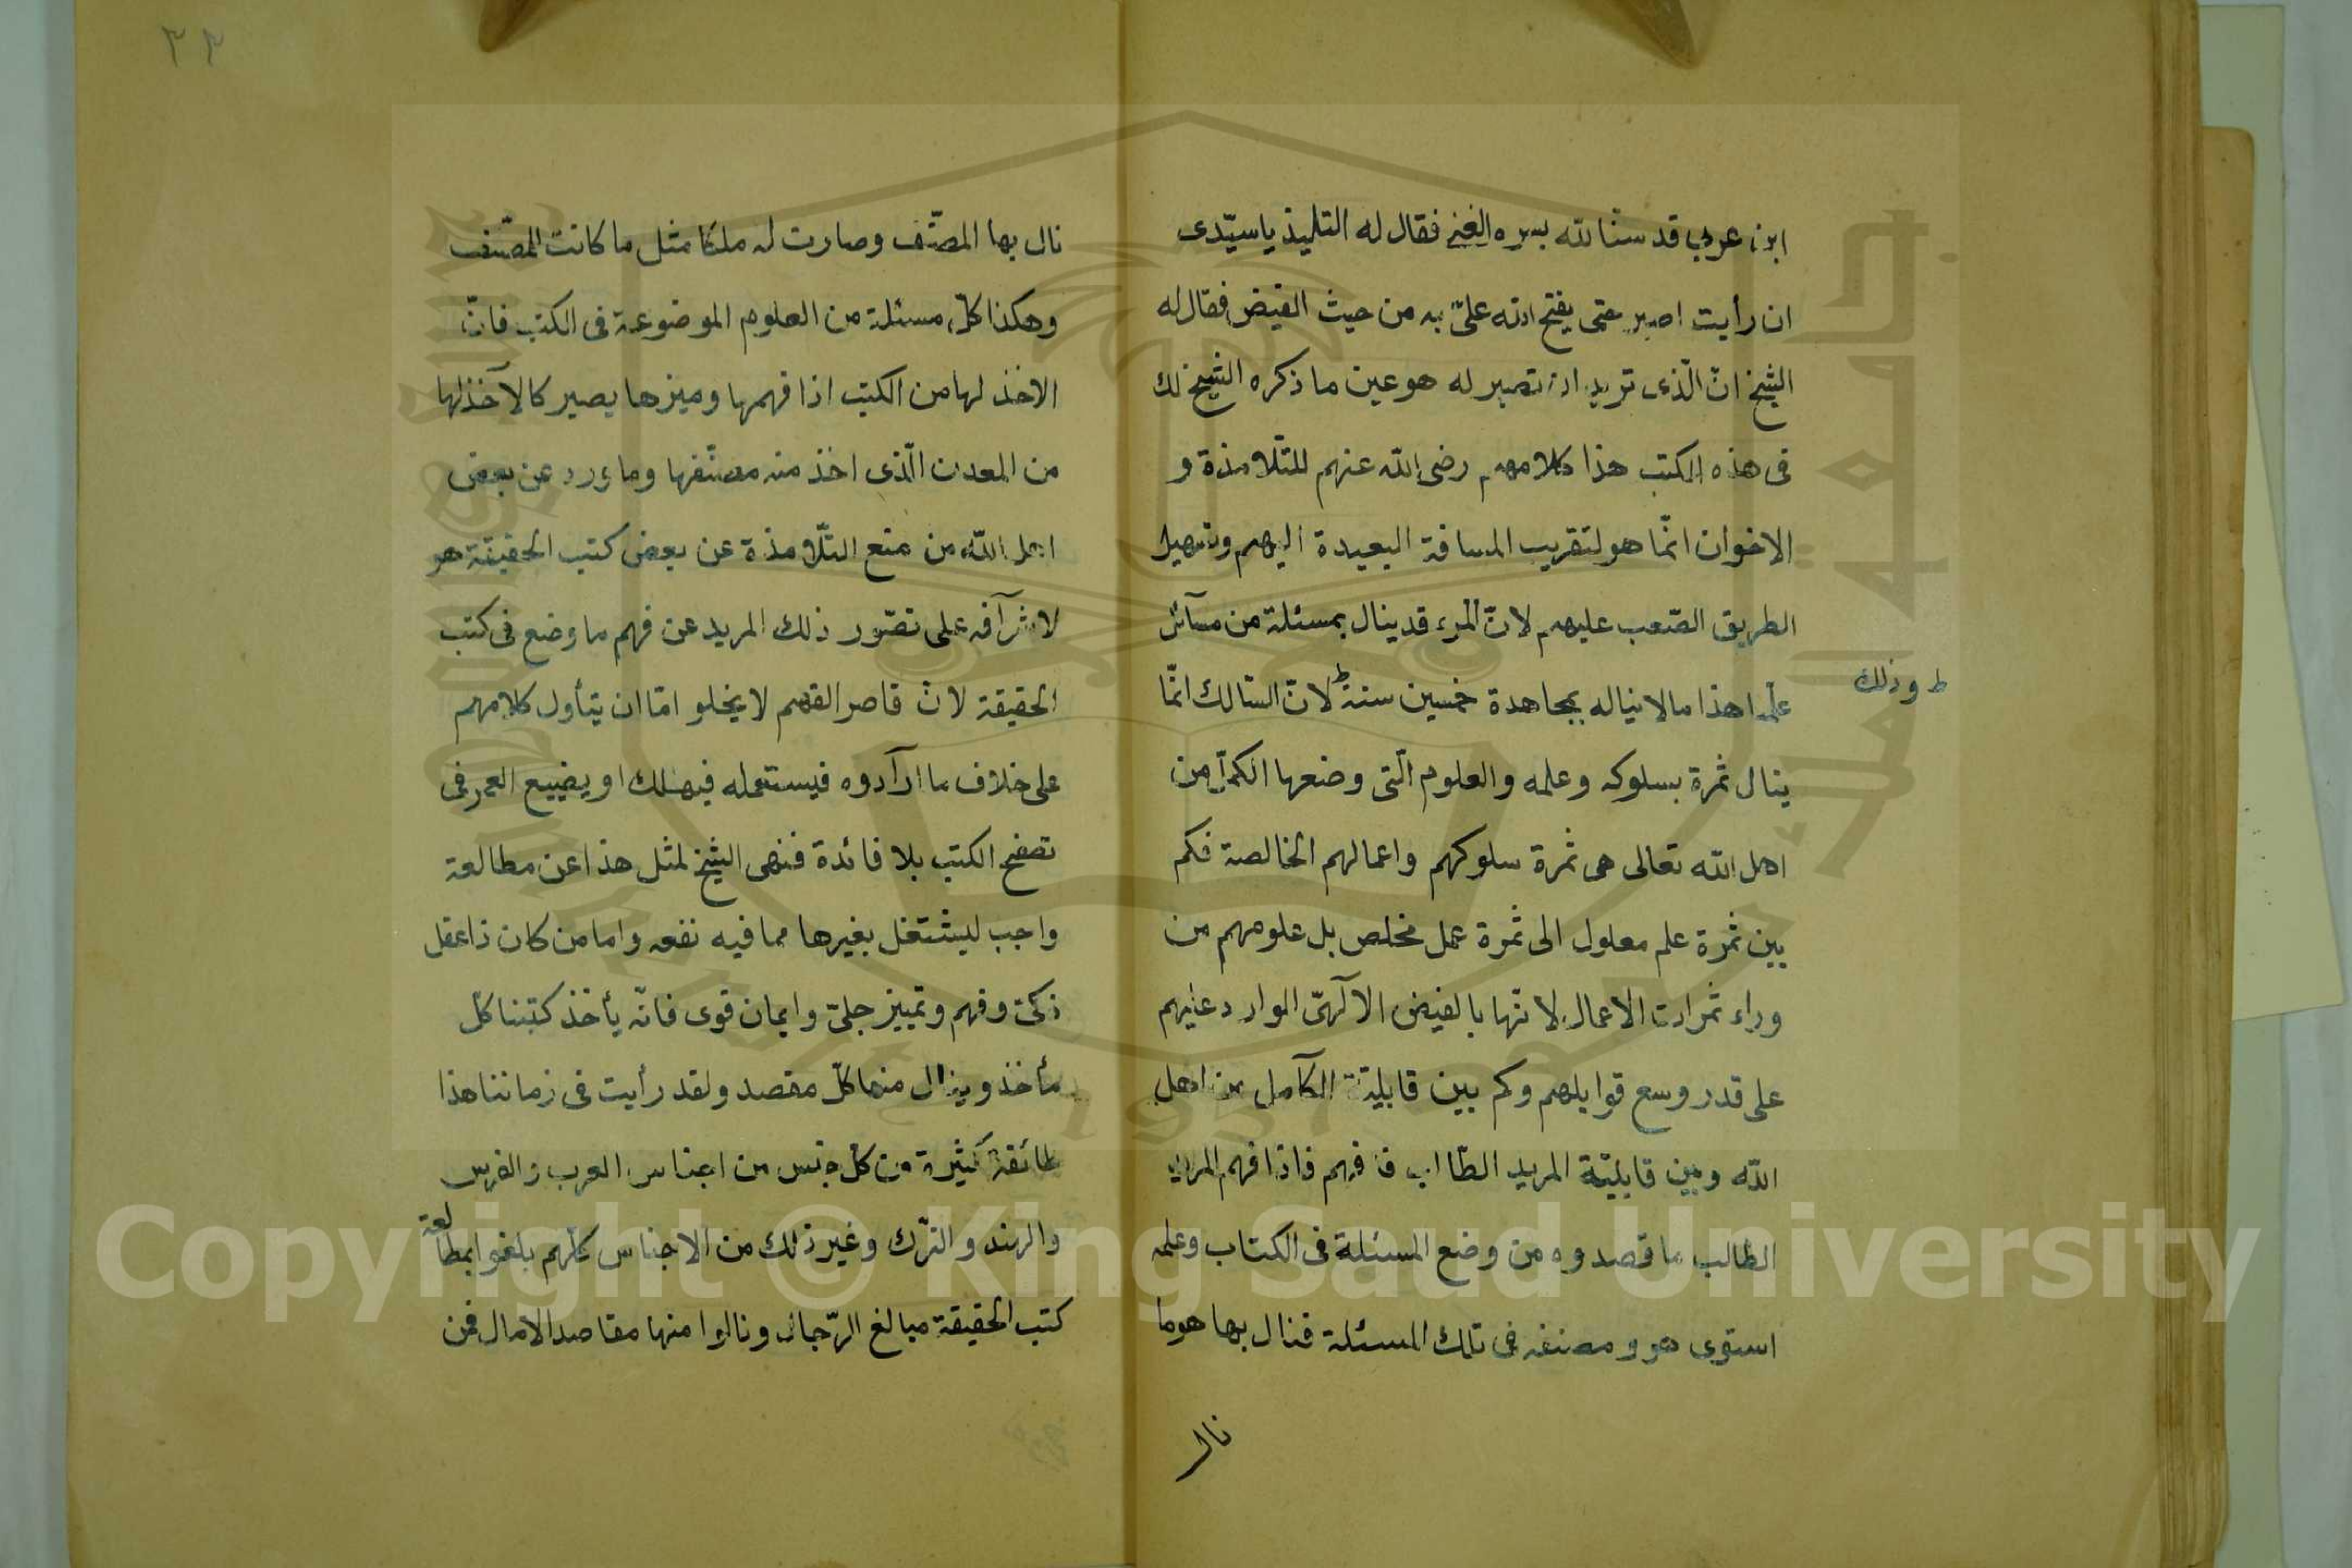 ابن عربي قدسنا لله بسره الغني فقال له التلميذ ياسيّدى
ان رأيت اصبر حتى يفتح الله علىّ به من حيث الفيض فقال له
الشيخ انّ الّذى تريد ان تصير له هو عين ما ذكره الشيخ لك
فى هذه الكتب هذا وكلامهم رضى الله عنهم للتّلامذة و
الاخوان انّما هو لتقريب المسافة البعيدة اليهم وتسهيل
الطريق الصّعب عليهم لانّ المرء قد ينال بمسئلة من مسآئل
علمنا هذا مالا يناله بمجاهدة خمسين سنة ط لانّ السّالك انّما
ط وذلك
ينال ثمرة بسلوكه وعلمه والعلوم الّتى وضعها الكمّل من
اهل الله تعالى هى ثمرة سلوكهم واعمالهم الخالصة فكم
بين ثمرة علم معلول الى ثمرة عمل مخلص بل علومهم من
وراء ثمرات الاعمال لانّها بالفيض الآلهىّ الوارد عليهم
على قدر وسع قوابلهم وكم بين قابليّة الكآمل من اهل
الله وبين قابليّة المريد الطّالب فافهم فاذا فهم المريد
الطالب ما قصدوه من وضع المسئلة فى الكتاب وعلمه
استوى هو ومصنفه فى تلك المسئلة فنال بها هو ما
نال
٢٢
نال بها المصنّف وصارت له ملكا مثل ما كانت للمصّنف
وهكذا كلّ مسئلة من العلوم الموضوعة فى الكتب فانّ
الاخذ لها من الكتب اذا فهمها وميزها يصير كالآخذ لها
من المعدن الّذى اخذ منه مصنّفها وما ورد عن بعض
اهل الله من منع التّلامذة عن بعض كتب الحقيقة هو
لاشرآفه على تصّور ذلك المريد عن فهم ما وضع فى كتب
الحقيقة لانّ قاصر الفهم لا يخلو امّا ان يتأول كلامهم
على خلاف ما ارآدوه فيستعمله فيهلك او يضييع العمر فى
تصفح الكتب بلا فائدة فنهى الشيخ لمثل هذا عن مطالعة
واجب ليشتغل بغيرها مما فيه نفعه واما من كان ذا عقل
ذكىّ وفهم وتمييز جلىّ وايمان قوى فانّه يأخذ كتبنا كلّ
مأخذ وينال منها كلّ مقصد ولقد رأيت فى زماننا هذا
طائفة كثيرة من كلّ جنس من اجناس العرب والفرس
والهند والتّرك وغير ذلك من الاجناس كلّهم بلغوا بمطالعة
كتب الحقيقة مبالغ الرّجال ونالوا منها مقاصد الامال فمن
Copyright © King Saud University